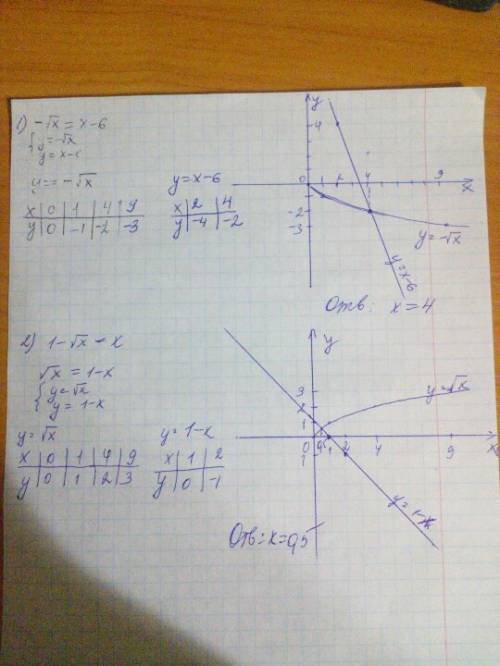 1) -√x = x-6
{ y=-√x
y=x-6
y=-√x
x | 0 | 1 | 4 | 9
y | 0 | -1 | -2 | -3
y=x-6
x | 2 | 4
y | -4 | -2
y
4
0
4
9
x
-2
-3
y=-√x
y=x-6
Отв: x=4
2) 1-√x = x
√x = 1-x
{ y=√x
y=1-x
y=√x
x | 0 | 1 | 4 | 9
y | 0 | 1 | 2 | 3
y=1-x
x | 1 | 2
y | 0 | -1
y
3
2
1
y=√x
0
1
2
4
9
x
1
y=1-x
Отв: x=0,5